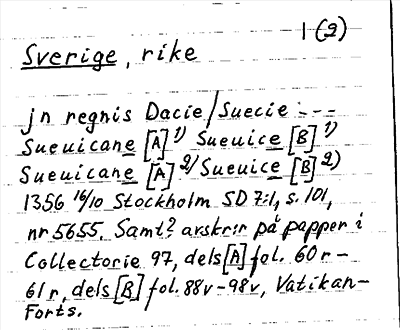 1(2)
Sverige, rike
jn regnis Dacie/Suecie ---
Sueuicane [A] 1) Sueuice [B] 1)
Sueuicane [A] 2)/Sueuice [B] 2)
1356 16/10 Stockholm SD 7:1, s. 101,
nr 5655. Samt? avskr:r på papper i
Collectorie 97, dels [A] fol. 60 r-
61 r, dels [B] fol. 88v-98v, Vatikan-
Forts.